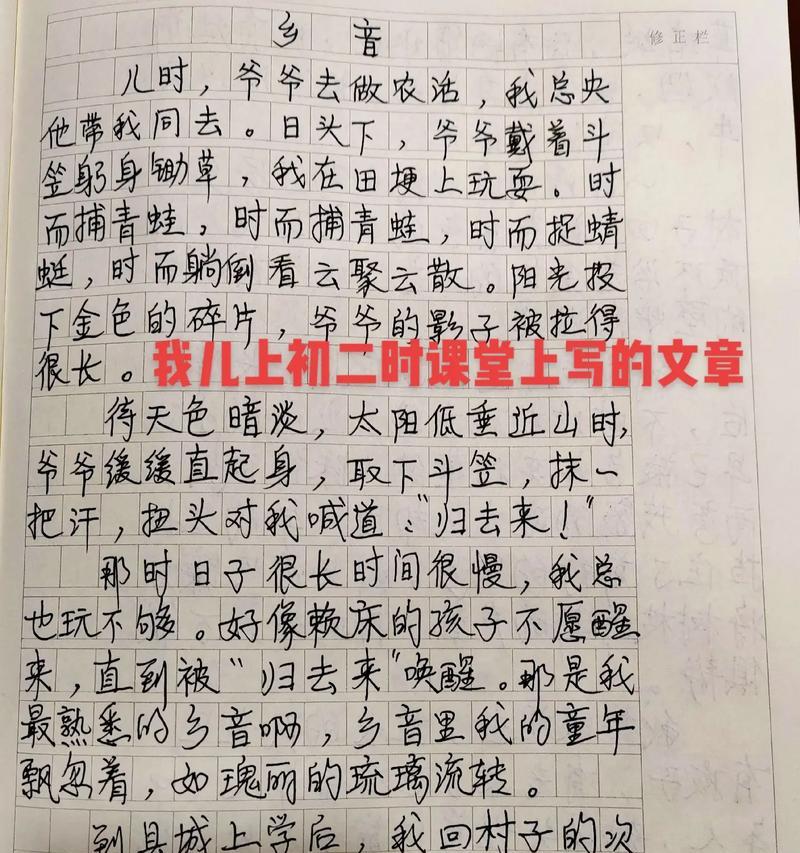 乡音
修正栏
儿时，爷爷去做农活，我总央
他带我同去。日头下，爷爷戴着斗
笠躬身锄草，我在田埂上玩耍。时
而捕青蛙，时而捕青蛙，时而捉蜻
蜓，时而躺倒看云聚云散。阳光投
下金色的碎片，爷爷的影子被拉得
很长。
我儿上初二时课堂上写的文章
待天色暗淡，太阳低垂近山时，
爷爷缓缓直起身，取下斗笠，抹一
把汗，扭头对我喊道：“归去来！”
那时日子很长时间很慢，我总
也玩不够。好像赖床的孩子不愿醒
来，直到被“归去来”唤醒。那是我
最熟悉的乡音啊，乡音里我的童年
飘忽着，如瑰丽的琉璃流转。
到县城上学后，我回村子的次